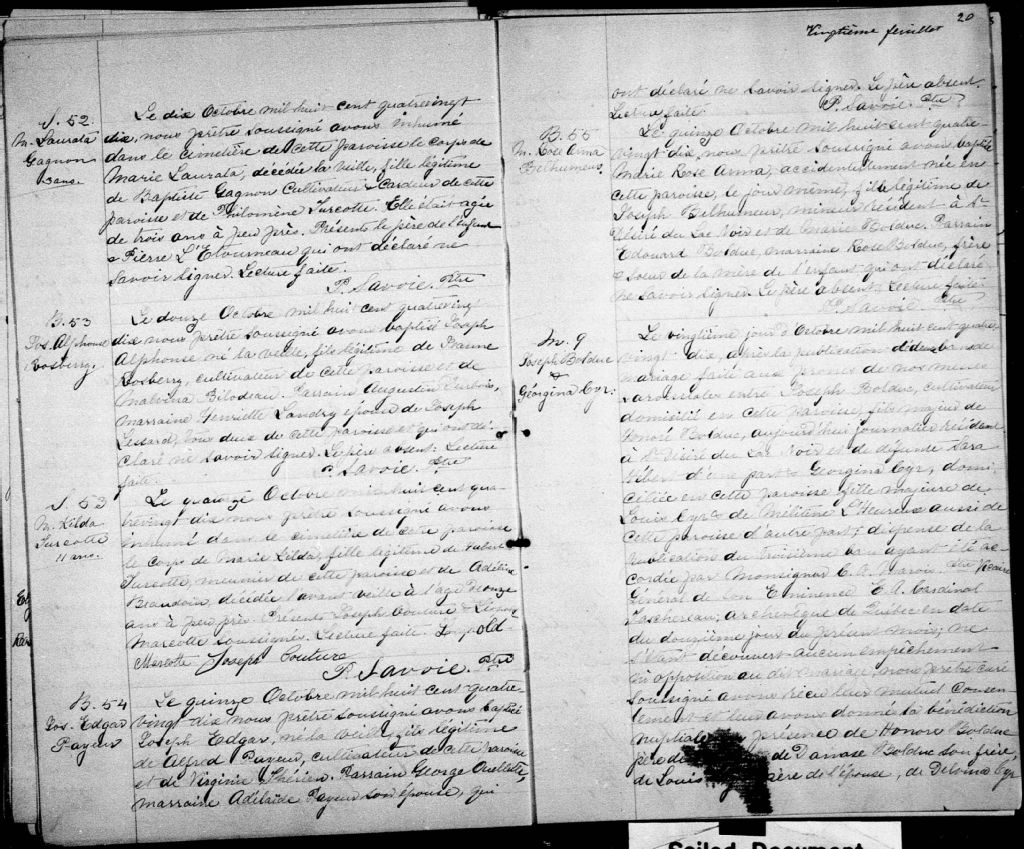 S. 52.
M. Laurata
Gagnon
3 ans.
Le dix Octobre mil huit cent quatrevingt
dix, nous prêtre soussigné avons inhumé
dans le cimetière de cette paroisse le corps de
Marie Laurata, décédée la veille, fille légitime
de Baptiste Gagnon Cultivateur & Cardeur de cette
paroisse et de Philomène Turcotte. Elle était agée
de trois ans à peu près. Présents le père de l'enfant
& Pierre L'Etourneau qui ont déclaré ne
savoir signer. Lecture faite.
P. Savoie. Ptre
B. 53
Jos. Alphonse
Rosberry.
Le douze Octobre mil huit cent quatrevingt
dix nous prêtre soussigné avons baptisé Joseph
Alphonse né la veille, fils légitime de
Rosberry, cultivateur de cette paroisse et de
Malvina Bilodeau. Parrain Augustin
Marraine Henriette Landry épouse de Joseph
Lessard, tous deux de cette paroisse et qui ont dé-
claré ne savoir signer. Le père absent. Lecture
faite.
P. Savoie. Ptre
S. 53
M. Lilda
Turcotte
11 ans.
Le quinze Octobre mil huit cent qua-
trevingt dix nous prêtre soussigné avons
inhumé dans le cimetière de cette paroisse
le corps de Marie Lilda, fille légitime de Hubert
Turcotte, meunier de cette paroisse et de Adéline
Beaudoin, décédée l'avant veille à l'age d'onze
ans à peu près. Présents Joseph Couture & Léopold
Marcotte soussignés. Lecture faite. Léopold
Marcotte Joseph Couture
P. Savoie. Ptre
B. 54
Jos. Edgar
Payeur
Le quinze Octobre mil huit cent quatre
vingt dix nous prêtre soussigné avons baptisé
Joseph Edgar, né la veille, fils légitime
de Alfred Payeur, cultivateur de cette paroisse
et de Virginie Thérien. Parrain George Ouellette,
marraine Adélaïde Payeur son épouse, qui
20
Vingtième feuillet
ont déclaré ne savoir signer. Le père absent.
Lecture faite.
P. Savoie. Ptre
B. 55
M. Rose Anna
Belhumeur.
Le quinze Octobre mil huit cent quatre-
vingt dix, nous prêtre soussigné avons baptisé
Marie Rose Anna, accidentellement née en
cette paroisse, le jour même, fille légitime de
Joseph Belhumeur, mineur résident à St
Désiré du Lac Noir et de Marie Bolduc. Parrain
Edouard Bolduc, marraine Rose Bolduc, frère
& soeur de la mère de l'enfant qui ont déclaré
ne savoir signer. Le père absent. Lecture faite.
P. Savoie Ptre
M. 9
Joseph Bolduc
&
Géorgina Cyr.
Le vingtième jour d'Octobre mil huit cent quatre
vingt dix, après la publication de deux bans de
mariage faite aux prones de nos messes
paroissiales entre Joseph Bolduc, cultivateur
domicilié en cette paroisse, fils majeur de
Honoré Bolduc, aujourd'hui journalier résident
à St Désiré du Lac Noir et de défunte Sara
Vibert d'une part & Georgina Cyr, domi-
ciliée en cette paroisse fille majeure de
Louis Cyr & de Mélitine L'Heureux aussi de
cette paroisse d'autre part; dispense de la
publication du troisième ban ayant été ac-
cordée par Monsignor C. A. Marois Ptre Vicaire
Général de Son Eminence E. A. Cardinal
Taschereau, archevêque de Québec en date
du douzième jour du présent mois; ne
s'étant découvert aucun empêchement
ou opposition au dit mariage, nous prêtre curé
soussigné avons reçu leur mutuel consen-
tement et leur avons donné la bénédiction
nuptiale présence de Honoré Bolduc
père de de Damase Bolduc son frère
de Louis père de l'épouse, de Cyr
Soiled Document